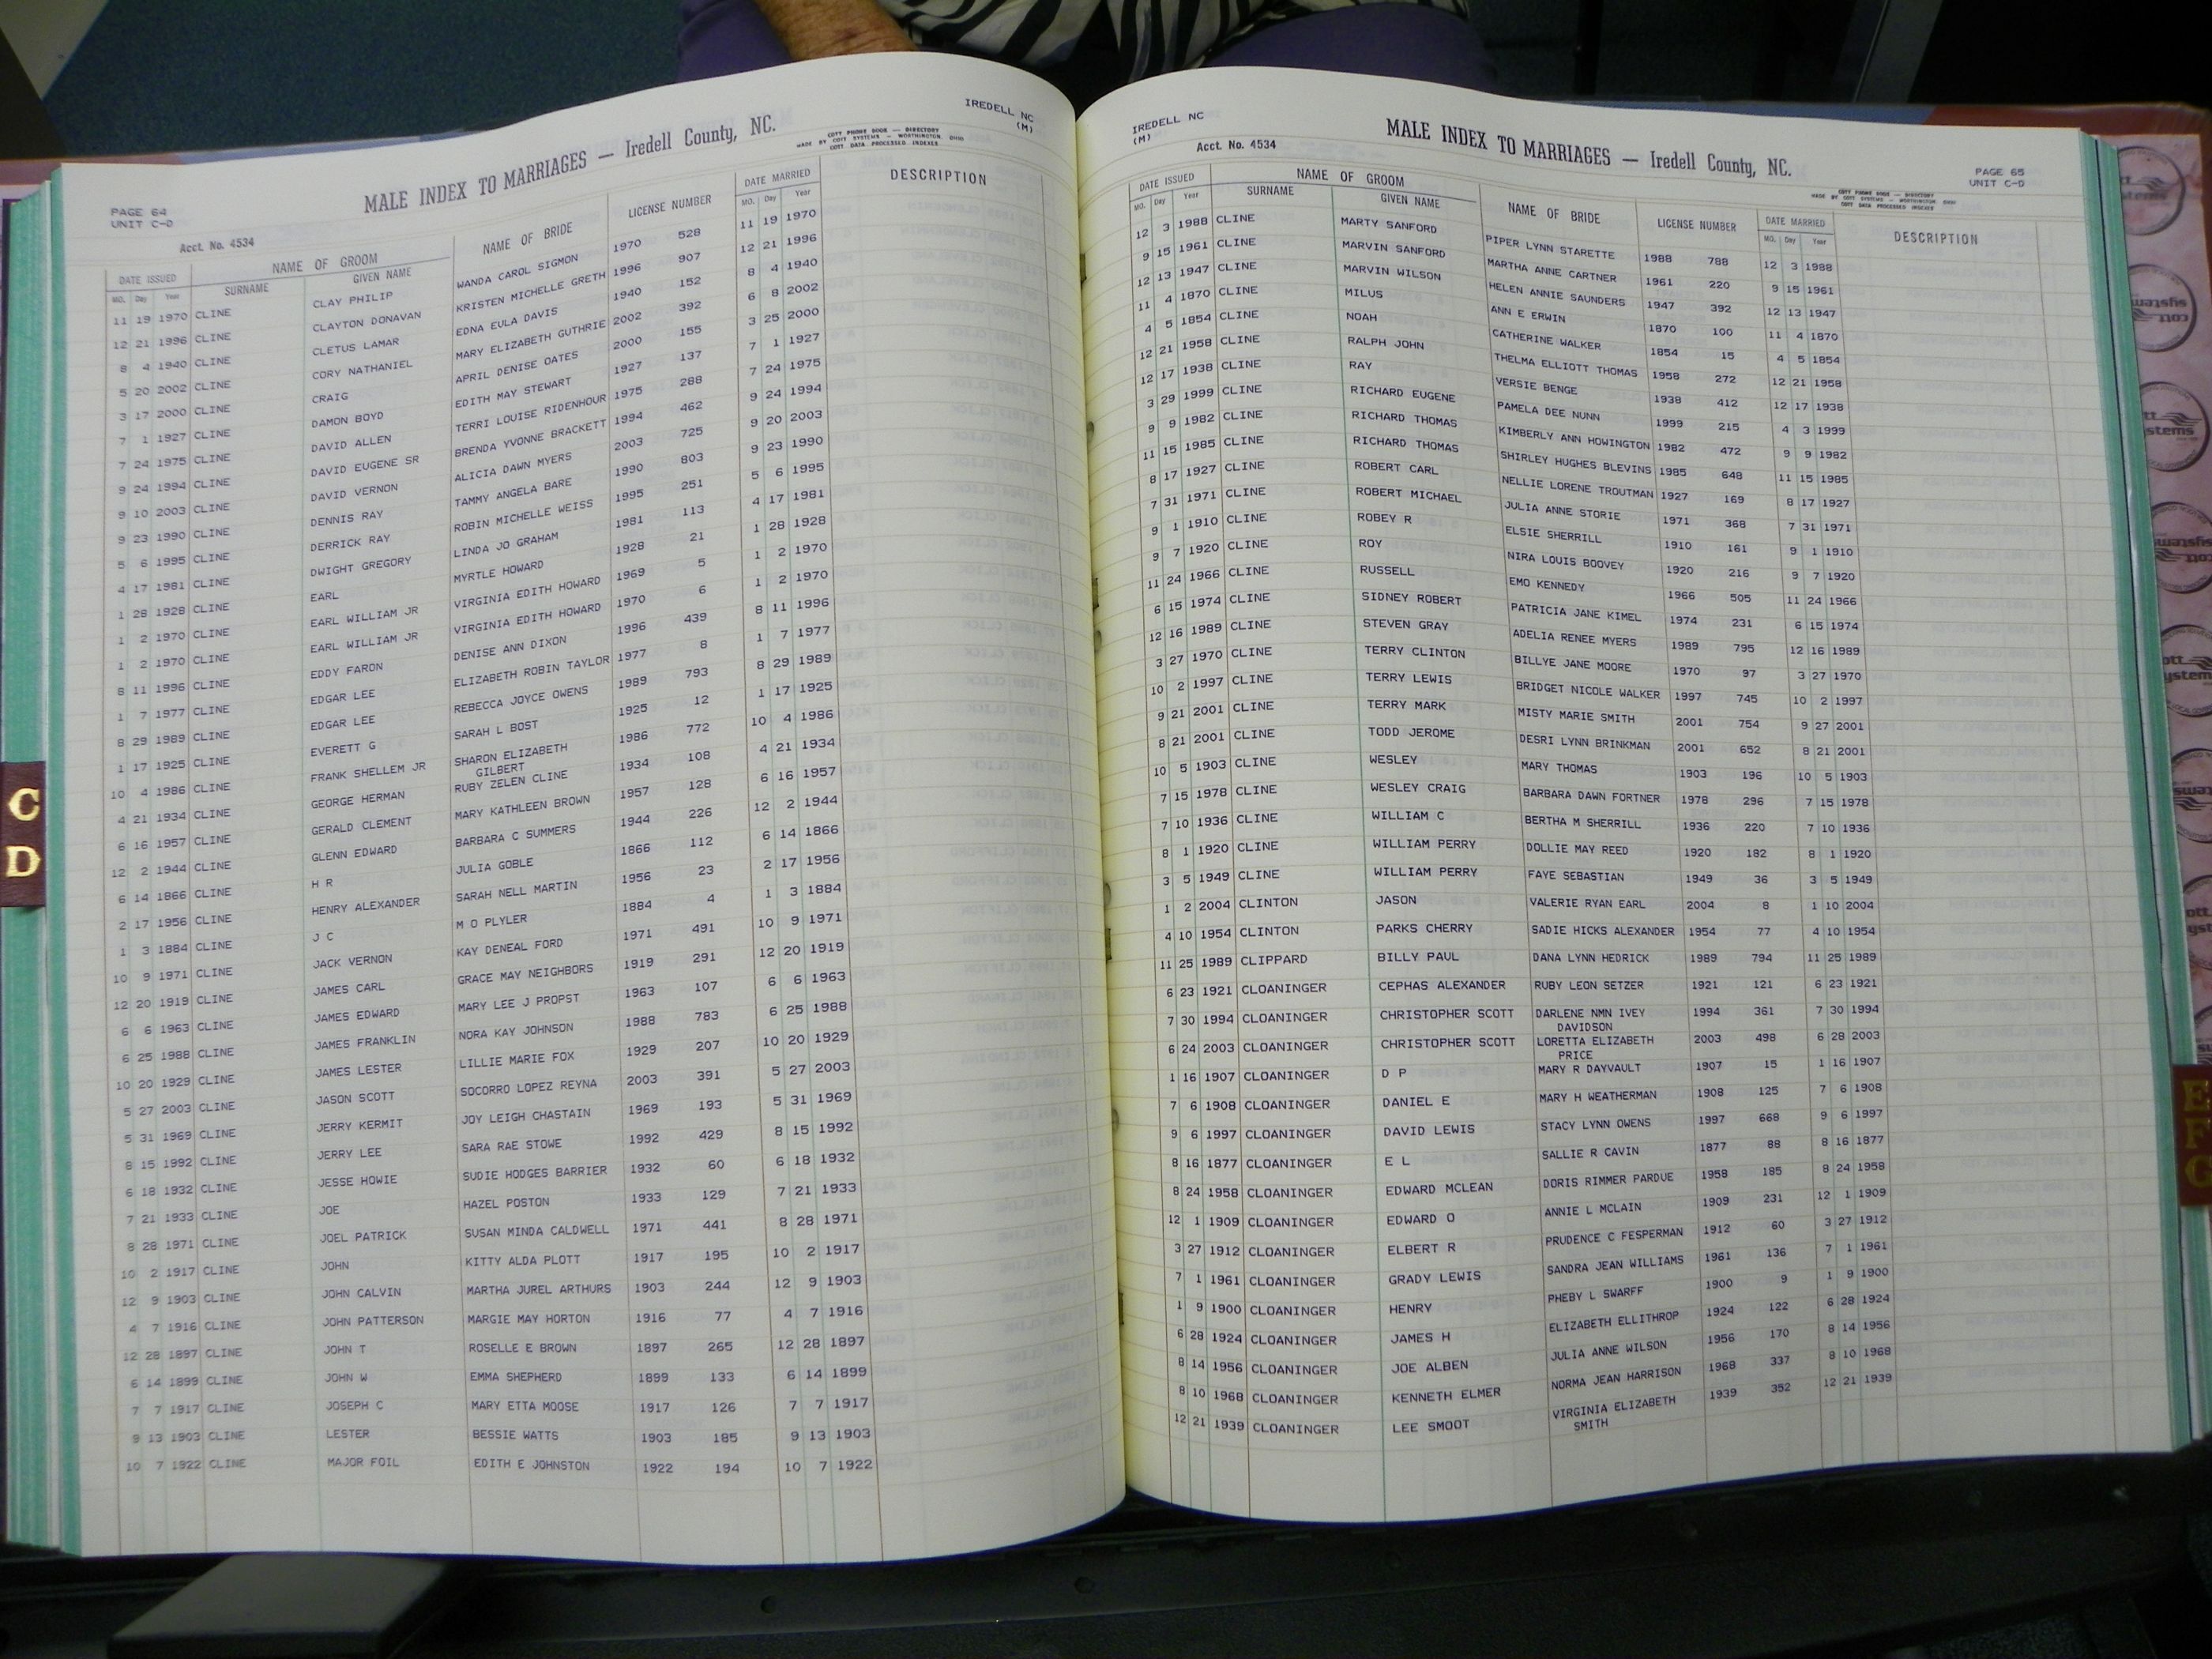 IREDELL NC
(M)
MALE INDEX TO MARRIAGES — Iredell County, NC.
COTT PHONE BOOK — DIRECTORY
MADE BY COTT SYSTEMS — WORTHINGTON, OHIO
COTT DATA PROCESSED INDEXES
PAGE 64
UNIT C-D
Acct. No. 4534
DATE ISSUED NAME OF GROOM NAME OF BRIDE LICENSE NUMBER DATE MARRIED DESCRIPTION
MO. Day Year SURNAME GIVEN NAME MO. Day Year
11 19 1970 CLINE CLAY PHILIP WANDA CAROL SIGMON 1970 528 11 19 1970
12 21 1996 CLINE CLAYTON DONAVAN KRISTEN MICHELLE GRETH 1996 907 12 21 1996
8 4 1940 CLINE CLETUS LAMAR EDNA EULA DAVIS 1940 152 8 4 1940
5 20 2002 CLINE CORY NATHANIEL MARY ELIZABETH GUTHRIE 2002 392 6 8 2002
3 17 2000 CLINE CRAIG APRIL DENISE OATES 2000 155 3 25 2000
7 1 1927 CLINE DAMON BOYD EDITH MAY STEWART 1927 137 7 1 1927
7 24 1975 CLINE DAVID ALLEN TERRI LOUISE RIDENHOUR 1975 288 7 24 1975
9 24 1994 CLINE DAVID EUGENE SR BRENDA YVONNE BRACKETT 1994 462 9 24 1994
9 10 2003 CLINE DAVID VERNON ALICIA DAWN MYERS 2003 725 9 20 2003
9 23 1990 CLINE DENNIS RAY TAMMY ANGELA BARE 1990 803 9 23 1990
5 6 1995 CLINE DERRICK RAY ROBIN MICHELLE WEISS 1995 251 5 6 1995
4 17 1981 CLINE DWIGHT GREGORY LINDA JO GRAHAM 1981 113 4 17 1981
1 28 1928 CLINE EARL MYRTLE HOWARD 1928 21 1 28 1928
1 2 1970 CLINE EARL WILLIAM JR VIRGINIA EDITH HOWARD 1969 5 1 2 1970
1 2 1970 CLINE EARL WILLIAM JR VIRGINIA EDITH HOWARD 1970 6 1 2 1970
8 11 1996 CLINE EDDY FARON DENISE ANN DIXON 1996 439 8 11 1996
1 7 1977 CLINE EDGAR LEE ELIZABETH ROBIN TAYLOR 1977 8 1 7 1977
8 29 1989 CLINE EDGAR LEE REBECCA JOYCE OWENS 1989 793 8 29 1989
1 17 1925 CLINE EVERETT G SARAH L BOST 1925 12 1 17 1925
10 4 1986 CLINE FRANK SHELLEM JR SHARON ELIZABETH 1986 772 10 4 1986
GILBERT
4 21 1934 CLINE GEORGE HERMAN RUBY ZELEN CLINE 1934 108 4 21 1934
6 16 1957 CLINE GERALD CLEMENT MARY KATHLEEN BROWN 1957 128 6 16 1957
12 2 1944 CLINE GLENN EDWARD BARBARA C SUMMERS 1944 226 12 2 1944
6 14 1866 CLINE H R JULIA GOBLE 1866 112 6 14 1866
2 17 1956 CLINE HENRY ALEXANDER SARAH NELL MARTIN 1956 23 2 17 1956
1 3 1884 CLINE J C M O PLYLER 1884 4 1 3 1884
10 9 1971 CLINE JACK VERNON KAY DENEAL FORD 1971 491 10 9 1971
12 20 1919 CLINE JAMES CARL GRACE MAY NEIGHBORS 1919 291 12 20 1919
6 6 1963 CLINE JAMES EDWARD MARY LEE J PROPST 1963 107 6 6 1963
6 25 1988 CLINE JAMES FRANKLIN NORA KAY JOHNSON 1988 783 6 25 1988
10 20 1929 CLINE JAMES LESTER LILLIE MARIE FOX 1929 207 10 20 1929
5 27 2003 CLINE JASON SCOTT SOCORRO LOPEZ REYNA 2003 391 5 27 2003
5 31 1969 CLINE JERRY KERMIT JOY LEIGH CHASTAIN 1969 193 5 31 1969
8 15 1992 CLINE JERRY LEE SARA RAE STOWE 1992 429 8 15 1992
6 18 1932 CLINE JESSE HOWIE SUDIE HODGES BARRIER 1932 60 6 18 1932
7 21 1933 CLINE JOE HAZEL POSTON 1933 129 7 21 1933
8 28 1971 CLINE JOEL PATRICK SUSAN MINDA CALDWELL 1971 441 8 28 1971
10 2 1917 CLINE JOHN KITTY ALDA PLOTT 1917 195 10 2 1917
12 9 1903 CLINE JOHN CALVIN MARTHA JUREL ARTHURS 1903 244 12 9 1903
4 7 1916 CLINE JOHN PATTERSON MARGIE MAY HORTON 1916 77 4 7 1916
12 28 1897 CLINE JOHN T ROSELLE E BROWN 1897 265 12 28 1897
6 14 1899 CLINE JOHN W EMMA SHEPHERD 1899 133 6 14 1899
7 7 1917 CLINE JOSEPH C MARY ETTA MOOSE 1917 126 7 7 1917
9 13 1903 CLINE LESTER BESSIE WATTS 1903 185 9 13 1903
10 7 1922 CLINE MAJOR FOIL EDITH E JOHNSTON 1922 194 10 7 1922
C
D
IREDELL NC
(M)
Acct. No. 4534
MALE INDEX TO MARRIAGES — Iredell County, NC.
PAGE 65
UNIT C-D
COTT PHONE BOOK — DIRECTORY
MADE BY COTT SYSTEMS — WORTHINGTON, OHIO
COTT DATA PROCESSED INDEXES
DATE ISSUED NAME OF GROOM NAME OF BRIDE LICENSE NUMBER DATE MARRIED DESCRIPTION
MO. Day Year SURNAME GIVEN NAME MO. Day Year
12 3 1988 CLINE MARTY SANFORD PIPER LYNN STARETTE 1988 788 12 3 1988
9 15 1961 CLINE MARVIN SANFORD MARTHA ANNE CARTNER 1961 220 9 15 1961
12 13 1947 CLINE MARVIN WILSON HELEN ANNIE SAUNDERS 1947 392 12 13 1947
11 4 1870 CLINE MILUS ANN E ERWIN 1870 100 11 4 1870
4 5 1854 CLINE NOAH CATHERINE WALKER 1854 15 4 5 1854
12 21 1958 CLINE RALPH JOHN THELMA ELLIOTT THOMAS 1958 272 12 21 1958
12 17 1938 CLINE RAY VERSIE BENGE 1938 412 12 17 1938
3 29 1999 CLINE RICHARD EUGENE PAMELA DEE NUNN 1999 215 4 3 1999
9 9 1982 CLINE RICHARD THOMAS KIMBERLY ANN HOWINGTON 1982 472 9 9 1982
11 15 1985 CLINE RICHARD THOMAS SHIRLEY HUGHES BLEVINS 1985 648 11 15 1985
8 17 1927 CLINE ROBERT CARL NELLIE LORENE TROUTMAN 1927 169 8 17 1927
7 31 1971 CLINE ROBERT MICHAEL JULIA ANNE STORIE 1971 368 7 31 1971
9 1 1910 CLINE ROBEY R ELSIE SHERRILL 1910 161 9 1 1910
9 7 1920 CLINE ROY NIRA LOUIS BOOVEY 1920 216 9 7 1920
11 24 1966 CLINE RUSSELL EMO KENNEDY 1966 505 11 24 1966
6 15 1974 CLINE SIDNEY ROBERT PATRICIA JANE KIMEL 1974 231 6 15 1974
12 16 1989 CLINE STEVEN GRAY ADELIA RENEE MYERS 1989 795 12 16 1989
3 27 1970 CLINE TERRY CLINTON BILLYE JANE MOORE 1970 97 3 27 1970
10 2 1997 CLINE TERRY LEWIS BRIDGET NICOLE WALKER 1997 745 10 2 1997
9 21 2001 CLINE TERRY MARK MISTY MARIE SMITH 2001 754 9 27 2001
8 21 2001 CLINE TODD JEROME DESRI LYNN BRINKMAN 2001 652 8 21 2001
10 5 1903 CLINE WESLEY MARY THOMAS 1903 196 10 5 1903
7 15 1978 CLINE WESLEY CRAIG BARBARA DAWN FORTNER 1978 296 7 15 1978
7 10 1936 CLINE WILLIAM C BERTHA M SHERRILL 1936 220 7 10 1936
8 1 1920 CLINE WILLIAM PERRY DOLLIE MAY REED 1920 182 8 1 1920
3 5 1949 CLINE WILLIAM PERRY FAYE SEBASTIAN 1949 36 3 5 1949
1 2 2004 CLINTON JASON VALERIE RYAN EARL 2004 8 1 10 2004
4 10 1954 CLINTON PARKS CHERRY SADIE HICKS ALEXANDER 1954 77 4 10 1954
11 25 1989 CLIPPARD BILLY PAUL DANA LYNN HEDRICK 1989 794 11 25 1989
6 23 1921 CLOANINGER CEPHAS ALEXANDER RUBY LEON SETZER 1921 121 6 23 1921
7 30 1994 CLOANINGER CHRISTOPHER SCOTT DARLENE NMN IVEY 1994 361 7 30 1994
DAVIDSON
6 24 2003 CLOANINGER CHRISTOPHER SCOTT LORETTA ELIZABETH 2003 498 6 28 2003
PRICE
1 16 1907 CLOANINGER D P MARY R DAYVAULT 1907 15 1 16 1907
7 6 1908 CLOANINGER DANIEL E MARY H WEATHERMAN 1908 125 7 6 1908
9 6 1997 CLOANINGER DAVID LEWIS STACY LYNN OWENS 1997 668 9 6 1997
8 16 1877 CLOANINGER E L SALLIE R CAVIN 1877 88 8 16 1877
8 24 1958 CLOANINGER EDWARD MCLEAN DORIS RIMMER PARDUE 1958 185 8 24 1958
12 1 1909 CLOANINGER EDWARD O ANNIE L MCLAIN 1909 231 12 1 1909
3 27 1912 CLOANINGER ELBERT R PRUDENCE C FESPERMAN 1912 60 3 27 1912
7 1 1961 CLOANINGER GRADY LEWIS SANDRA JEAN WILLIAMS 1961 136 7 1 1961
1 9 1900 CLOANINGER HENRY PHEBY L SWARFF 1900 9 1 9 1900
6 28 1924 CLOANINGER JAMES H ELIZABETH ELLITHROP 1924 122 6 28 1924
8 14 1956 CLOANINGER JOE ALBEN JULIA ANNE WILSON 1956 170 8 14 1956
8 10 1968 CLOANINGER KENNETH ELMER NORMA JEAN HARRISON 1968 337 8 10 1968
12 21 1939 CLOANINGER LEE SMOOT VIRGINIA ELIZABETH 1939 352 12 21 1939
SMITH
E
F
G